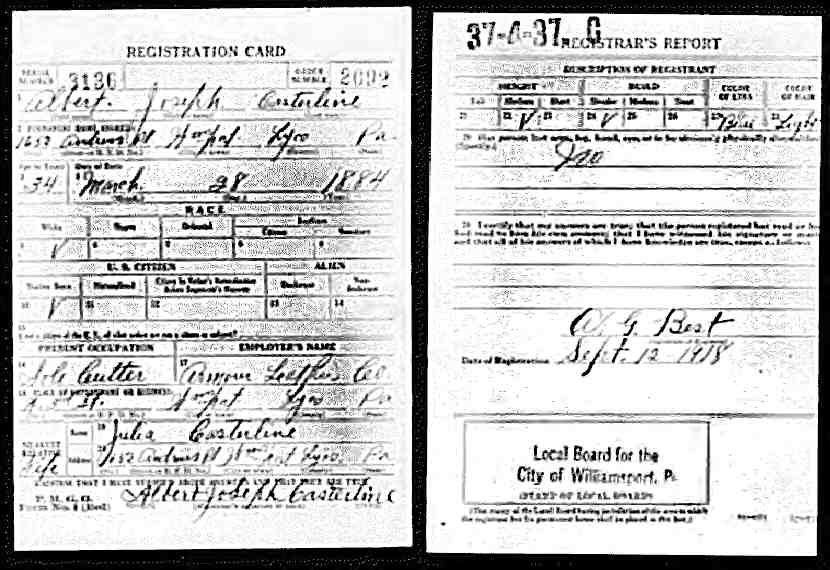 REGISTRATION CARD
SERIAL NUMBER 3136 ORDER NUMBER 2092
1 Albert Joseph Casterline
2 PERMANENT HOME ADDRESS
1652 Andrews Pl Wmspt Lyco Pa
Age in Years Date of Birth
3 34 4 March 28 1884
RACE
White Negro Oriental Indian
Citizen Noncitizen
5 ✓ 6 7 8 9
U. S. CITIZEN ALIEN
Native Born Naturalized Citizen by Father's Naturalization Before Registrant's Majority Declarant Non-declarant
10 ✓ 11 12 13 14
15
PRESENT OCCUPATION EMPLOYER'S NAME
16 Sole Cutter 17 Armour Leather Co
18 PLACE OF EMPLOYMENT OR BUSINESS
St. Wmspt Lyco Pa
NEAREST RELATIVE Name 19 Julia Casterline
Wife Address 20 1652 Andrews Pl Lyco Pa
I AFFIRM THAT I HAVE VERIFIED ABOVE ANSWERS AND THAT THEY ARE TRUE
P. M. G. O.
Form No. 1 (Red) Albert Joseph Casterline
37-4-37 C
REGISTRAR'S REPORT
DESCRIPTION OF REGISTRANT
HEIGHT BUILD COLOR OF EYES COLOR OF HAIR
Tall Medium Short Slender Medium Stout
21 22 ✓ 23 24 ✓ 25 26 27 Blue 28 Light
29 Has person lost arm, leg, hand, eye, or is he obviously physically
No
30 I certify that my answers are true; that the person registered has read or has
had read to him his own answers; that I have witnessed his signature or mark
and that all of his answers of which I have knowledge are true, except as follows:
A. G. Best
Date of Registration Sept. 12 1918
Local Board for the
City of Williamsport, Pa
(STAMP OF LOCAL BOARD)
(The stamp of the Local Board having jurisdiction of the area in which
the registrant has his permanent home shall be placed in this box.)